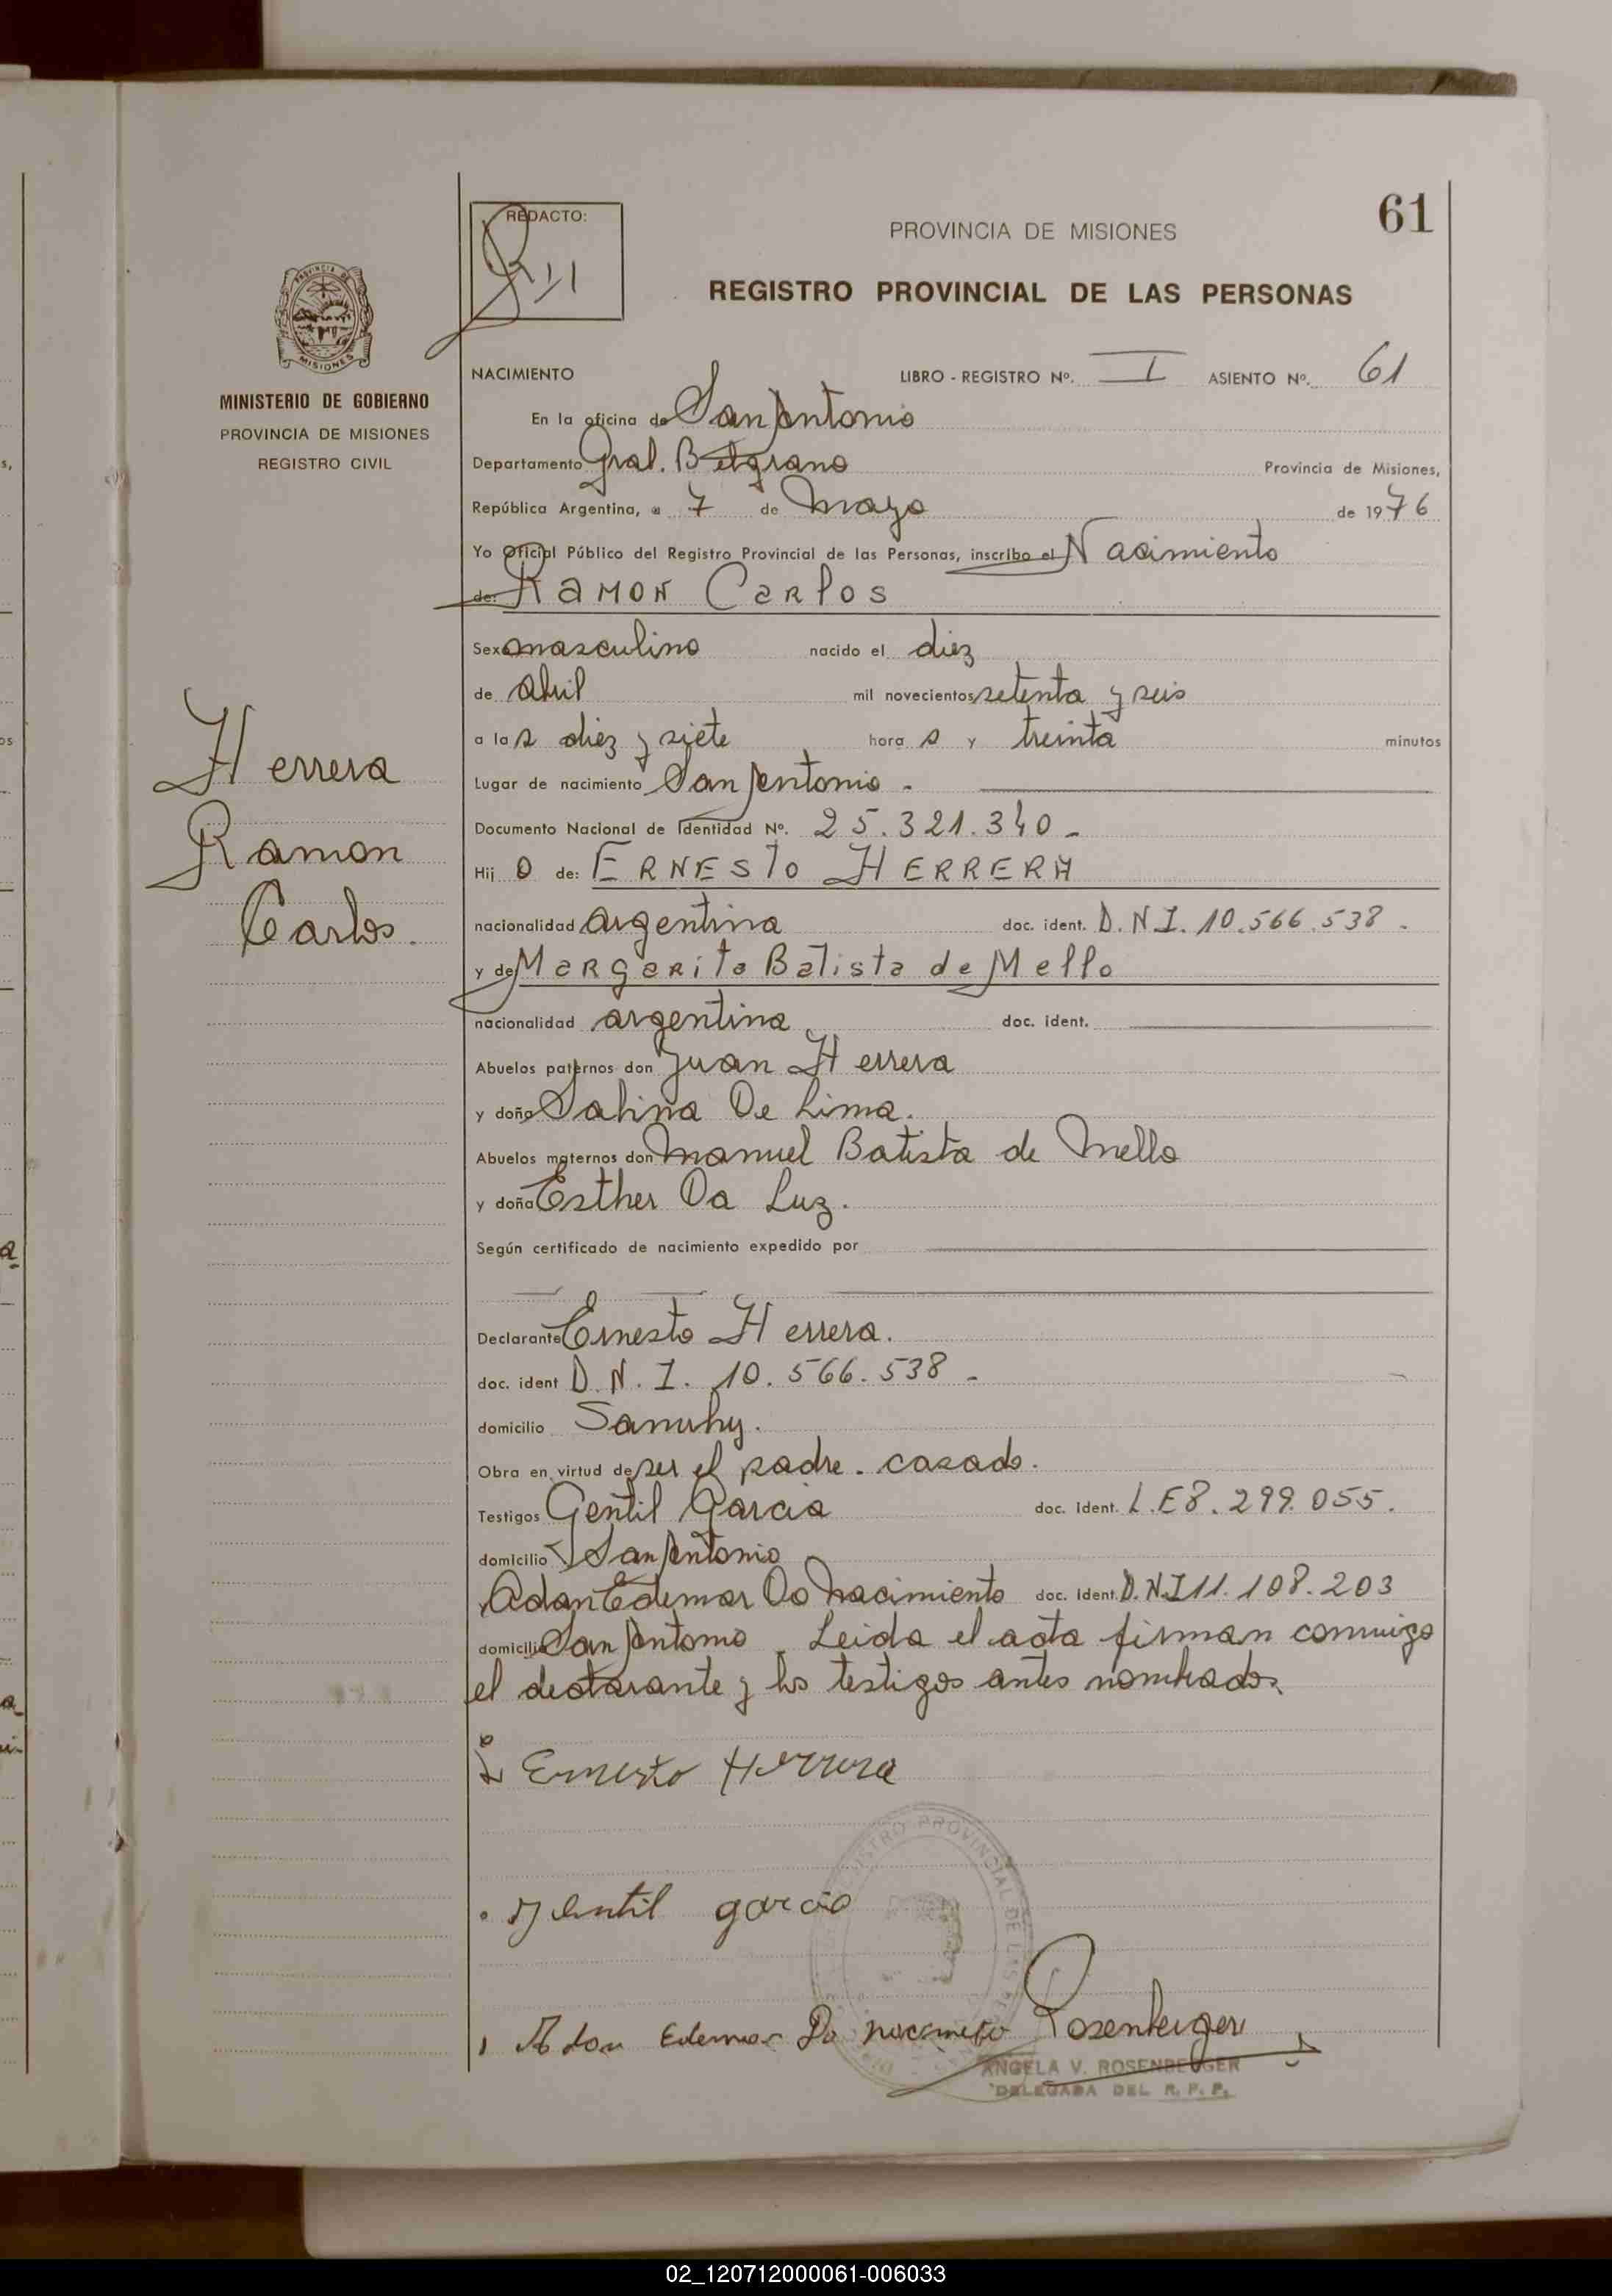 REDACTO:
PROVINCIA DE MISIONES
61
REGISTRO PROVINCIAL DE LAS PERSONAS
MISIONES
MINISTERIO DE GOBIERNO
PROVINCIA DE MISIONES
REGISTRO CIVIL
Herrera
Ramon
Carlos.
NACIMIENTO LIBRO - REGISTRO Nº. I ASIENTO Nº. 61
En la oficina de San Antonio
Departamento Gral. Belgrano Provincia de Misiones,
República Argentina, a 7 de Mayo de 1976
Yo Oficial Público del Registro Provincial de las Personas, inscribo el Nacimiento
de: RAMON CARLOS
Sexo masculino nacido el diez
de abril mil novecientos setenta y seis
a las diez y siete horas y treinta minutos
Lugar de nacimiento San Antonio -
Documento Nacional de Identidad Nº. 25.321.340 -
Hijo de: ERNESTO HERRERA
nacionalidad argentina doc. ident. D.N.I. 10.566.538 -
y de Margarita Batista de Mello
nacionalidad argentina doc. ident.
Abuelos paternos don Juan Herrera
y doña Sabina De Lima.
Abuelos maternos don Manuel Batista de Mello
y doña Esther Da Luz.
Según certificado de nacimiento expedido por
Declarante Ernesto Herrera.
doc. ident D.N.I. 10.566.538 -
domicilio
Obra en virtud de ser el padre - casado.
Testigos Gentil Garcia doc. Ident. L.E 8.299.055.
domicilio San Antonio
Adan Edemar Do Nacimiento doc. Ident. D.N.I 11.108.203
domicilio San Antonio. Leida el acta firman conmigo
el declarante y los testigos antes nombrados.
Ernesto Herrera
Jentil garcia
Adan Edemar Do nacimeto Rosenberger
REGISTRO PROVINCIAL DE LAS
ANGELA V. ROSENBERGER
DELEGADA DEL R. P. P.
02_120712000061-006033